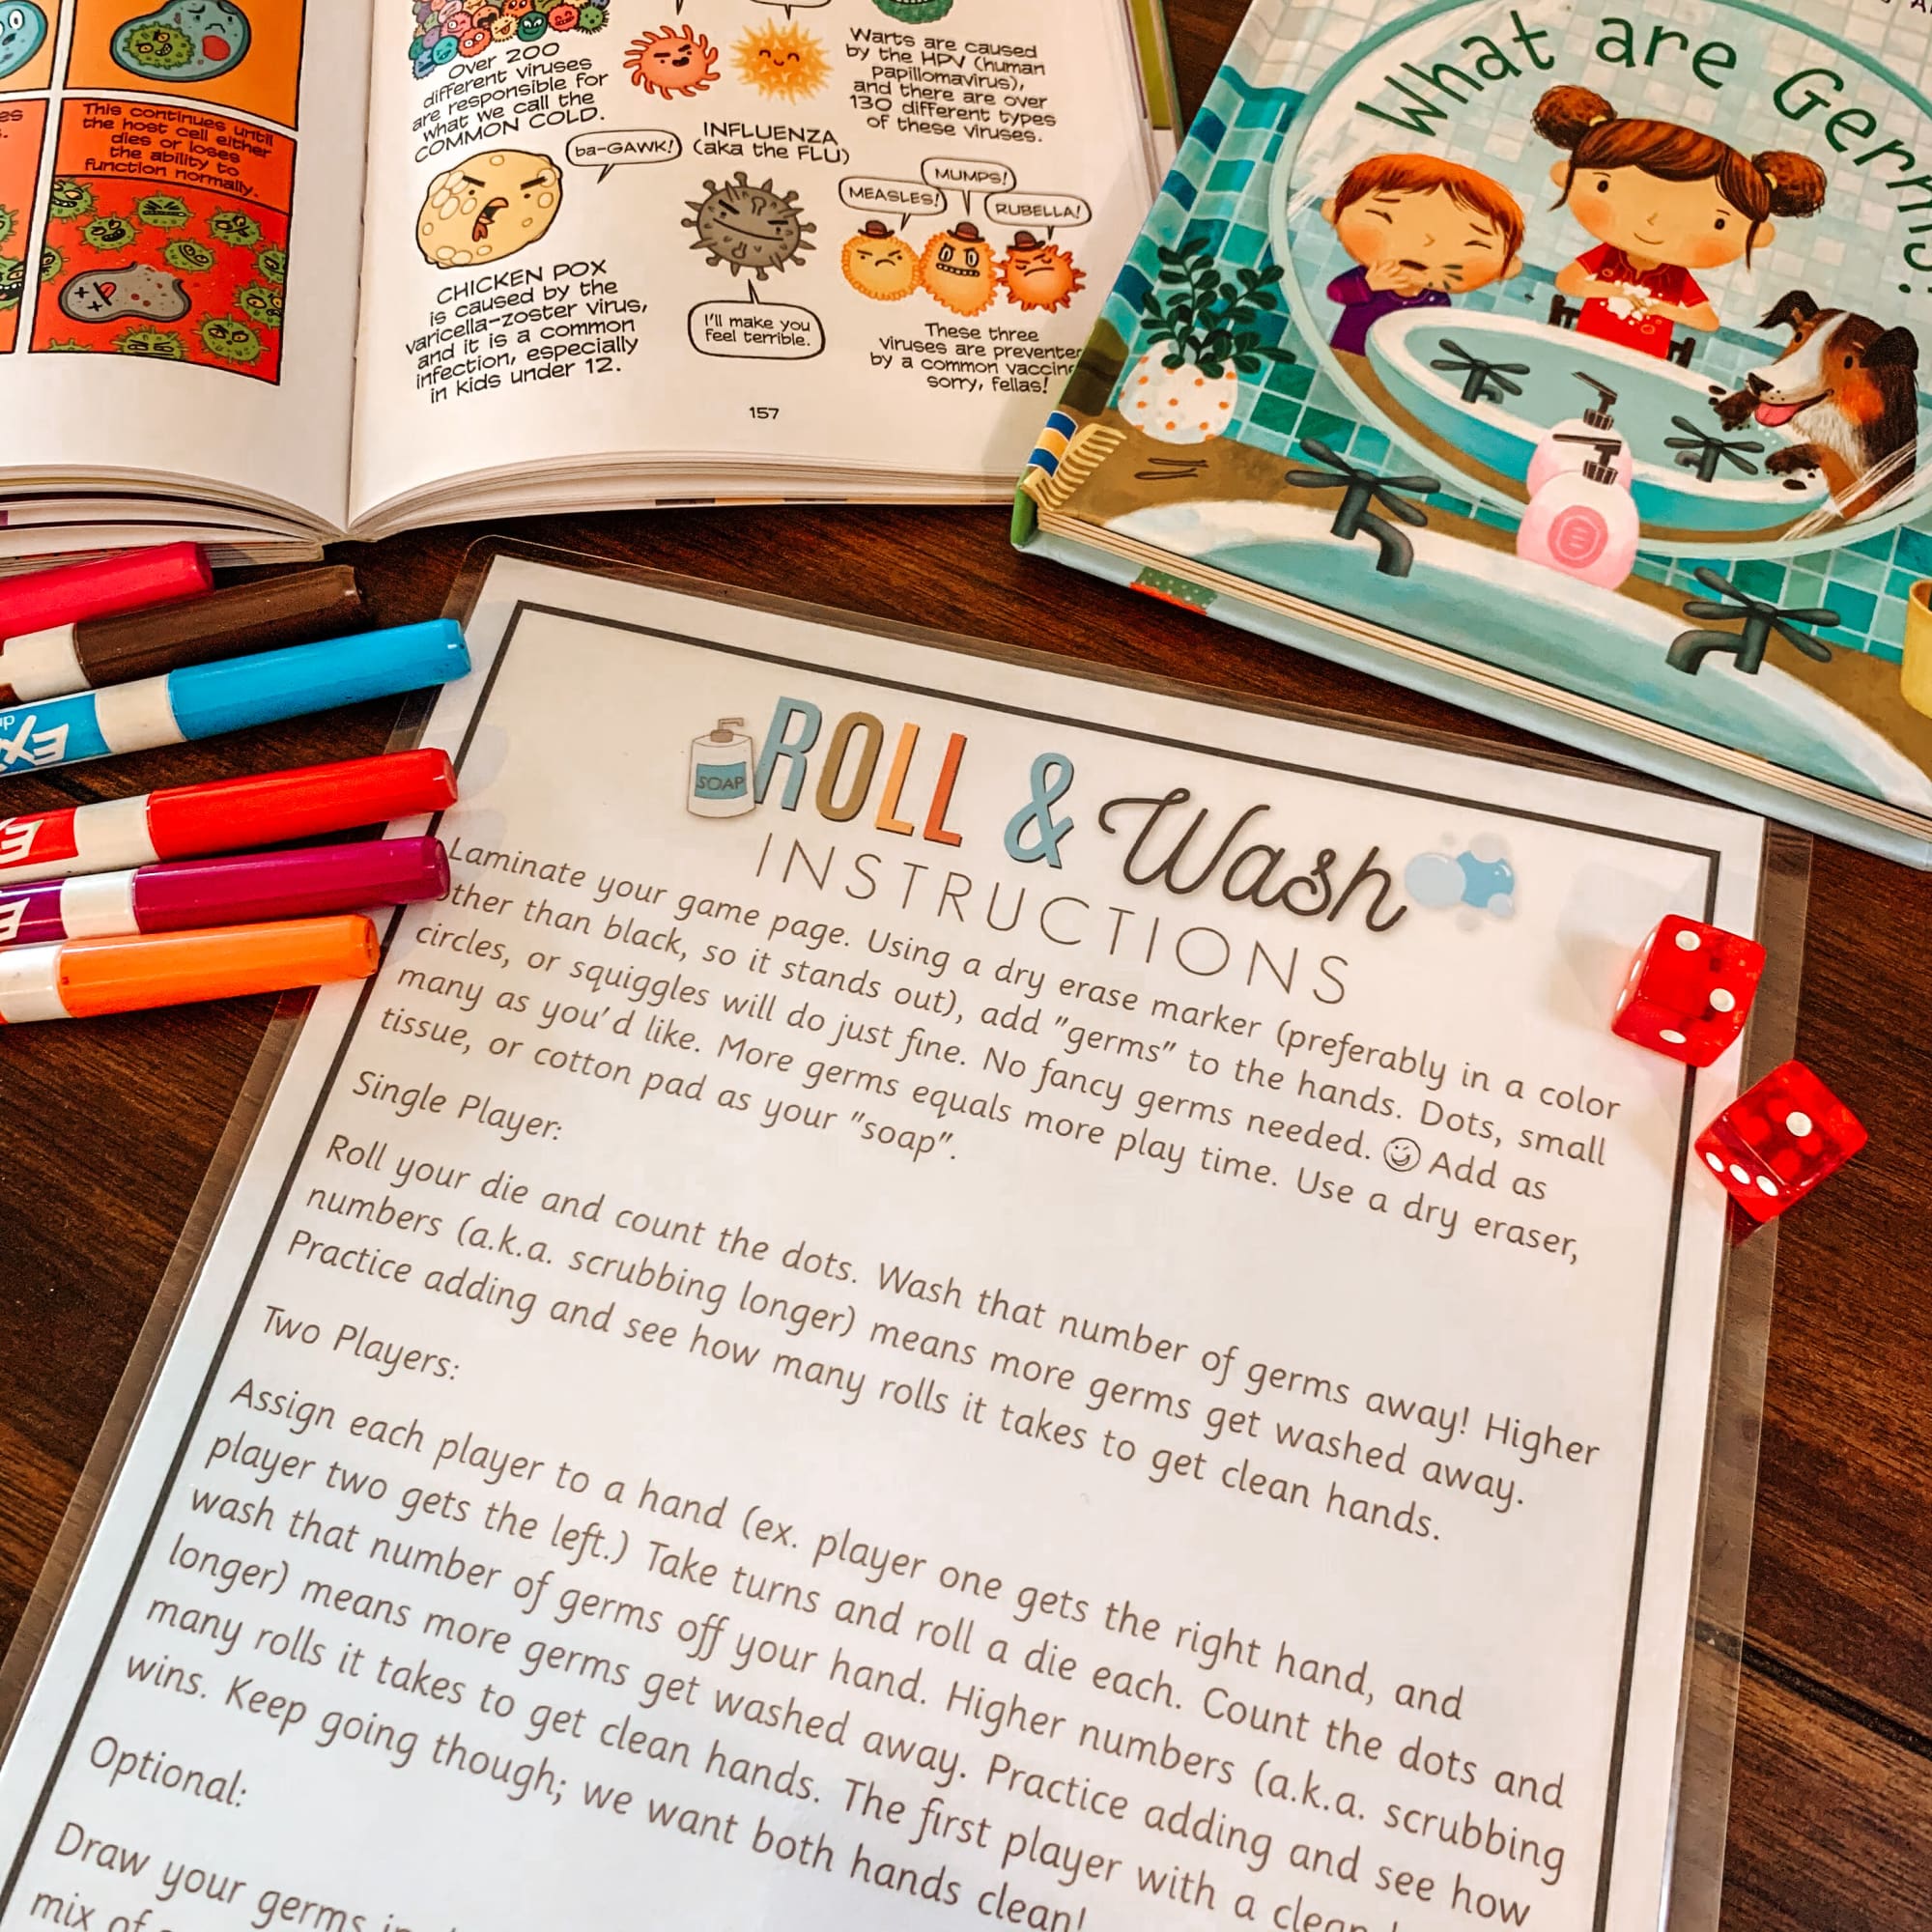 This continues until
the host cell either
dies or loses
the ability to
function normally.
Over 200
different viruses
are responsible for
what we call the
COMMON COLD.
INFLUENZA
(aka the FLU)
Warts are caused
by the HPV (human
papillomavirus),
and there are over
130 different types
of these viruses.
ba-GAWK!
MEASLES!
MUMPS!
RUBELLA!
CHICKEN POX
is caused by the
varicella-zoster virus,
and it is a common
infection, especially
in kids under 12.
I'll make you
feel terrible.
These three
viruses are
by a common
sorry, fellas!
157
What are Germs?
SOAP
ROLL & Wash
INSTRUCTIONS
Laminate your game page. Using a dry erase marker (preferably in a color
other than black, so it stands out), add "germs" to the hands. Dots, small
circles, or squiggles will do just fine. No fancy germs needed. Add as
many as you'd like. More germs equals more play time. Use a dry eraser,
tissue, or cotton pad as your "soap".
Single Player:
Roll your die and count the dots. Wash that number of germs away! Higher
numbers (a.k.a. scrubbing longer) means more germs get washed away.
Practice adding and see how many rolls it takes to get clean hands.
Two Players:
Assign each player to a hand (ex. player one gets the right hand, and
player two gets the left.) Take turns and roll a die each. Count the dots and
wash that number of germs off your hand. Higher numbers (a.k.a. scrubbing
longer) means more germs get washed away. Practice adding and see how
many rolls it takes to get clean hands. The first player with a clean
wins. Keep going though; we want both hands clean!
Optional:
Draw your germs
mix of